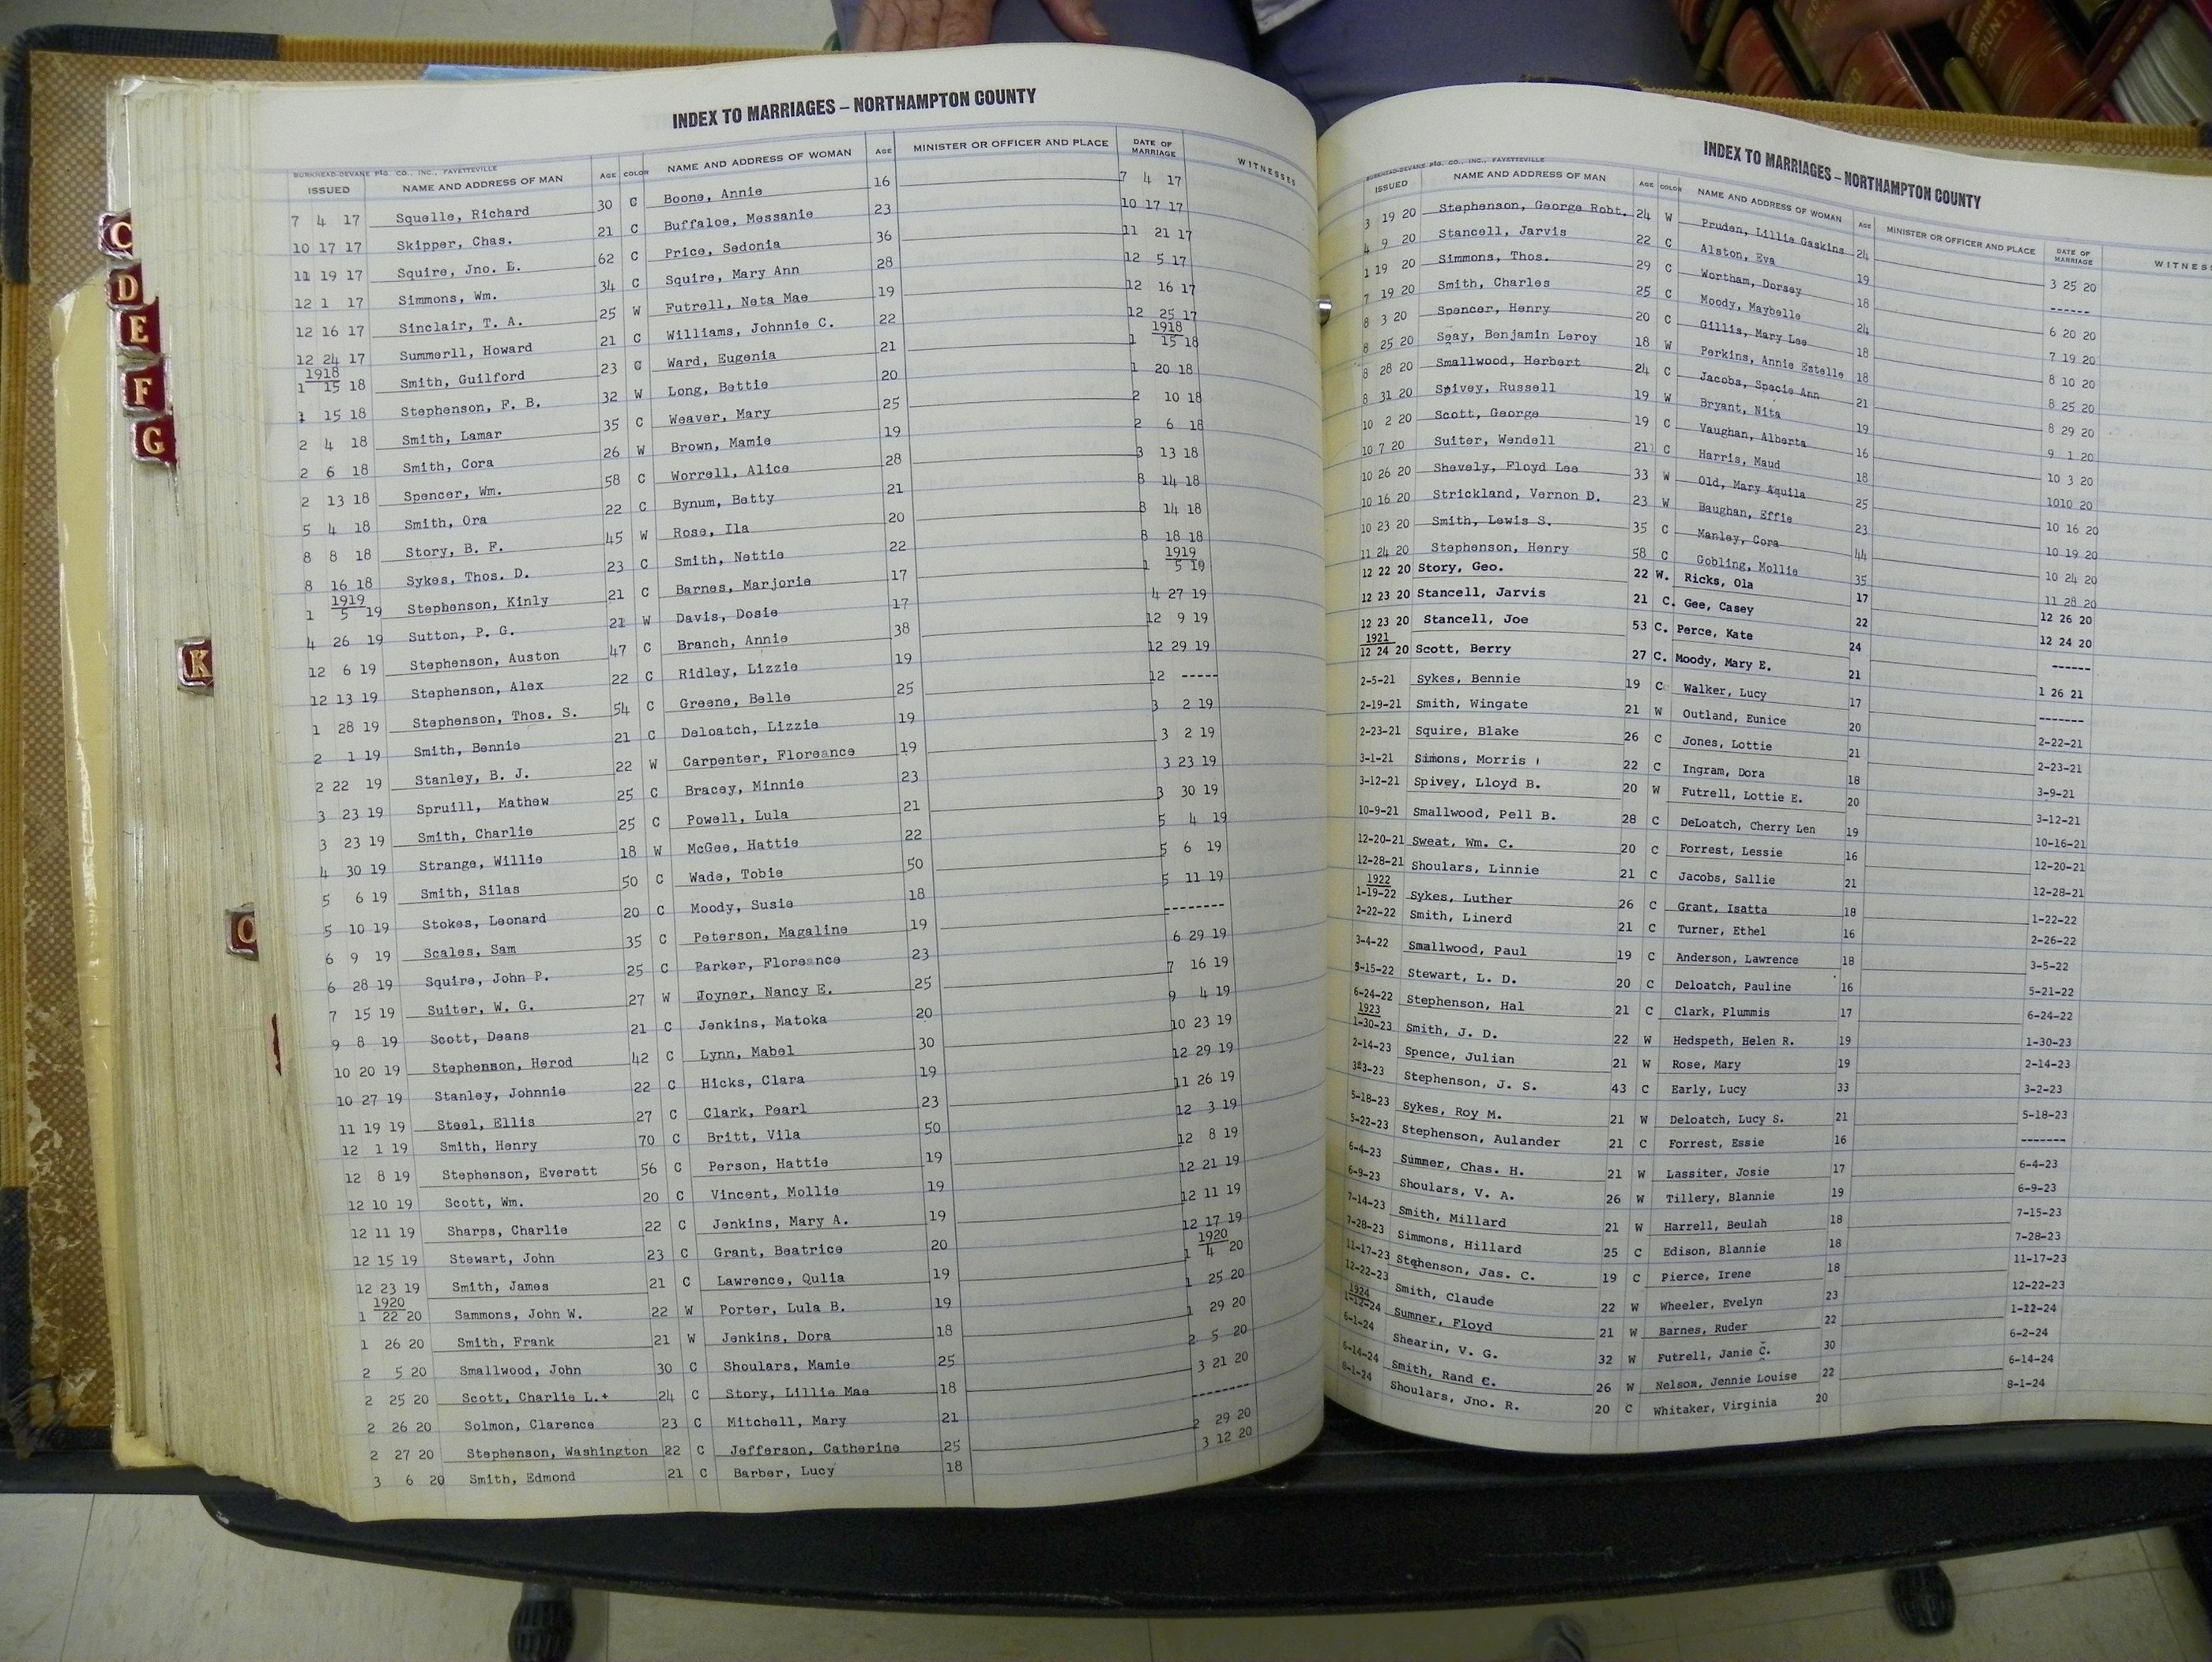 INDEX TO MARRIAGES – NORTHAMPTON COUNTY
BURKHEAD-DEVANE P'G. CO., INC., FAYETTEVILLE
ISSUED NAME AND ADDRESS OF MAN AGE COLOR NAME AND ADDRESS OF WOMAN AGE MINISTER OR OFFICER AND PLACE DATE OF MARRIAGE WITNESSES
7 4 17 Squelle, Richard 30 C Boone, Annie 16 7 4 17
10 17 17 Skipper, Chas. 21 C Buffaloe, Messanie 23 10 17 17
11 19 17 Squire, Jno. E. 62 C Price, Sedonia 36 11 21 17
12 1 17 Simmons, Wm. 34 C Squire, Mary Ann 28 12 5 17
12 16 17 Sinclair, T. A. 25 W Futrell, Neta Mae 19 12 16 17
12 24 17 Summerll, Howard 21 C Williams, Johnnie C. 22 12 25 17
1918 1918
1 15 18 Smith, Guilford 23 C Ward, Eugenia 21 1 15 18
1 15 18 Stephenson, F. B. 32 W Long, Bettie 20 1 20 18
2 4 18 Smith, Lamar 35 C Weaver, Mary 25 2 10 18
2 6 18 Smith, Cora 26 W Brown, Mamie 19 2 6 18
2 13 18 Spencer, Wm. 58 C Worrell, Alice 28 3 13 18
5 4 18 Smith, Ora 22 C Bynum, Betty 21 8 14 18
8 8 18 Story, B. F. 45 W Rose, Ila 20 8 14 18
8 16 18 Sykes, Thos. D. 23 C Smith, Nettie 22 8 18 18
1919 1919
1 5 19 Stephenson, Kinly 21 C Barnes, Marjorie 17 1 5 19
4 26 19 Sutton, P. G. 21 W Davis, Dosie 17 4 27 19
12 6 19 Stephenson, Auston 47 C Branch, Annie 38 12 9 19
12 13 19 Stephenson, Alex 22 C Ridley, Lizzie 19 12 29 19
1 28 19 Stephenson, Thos. S. 54 C Greene, Belle 25 12 -----
2 1 19 Smith, Bennie 21 C Deloatch, Lizzie 19 3 2 19
2 22 19 Stanley, B. J. 22 W Carpenter, Floreance 19 3 2 19
3 23 19 Spruill, Mathew 25 C Bracey, Minnie 23 3 23 19
3 23 19 Smith, Charlie 25 C Powell, Lula 21 3 30 19
4 30 19 Strange, Willie 18 W McGee, Hattie 22 5 4 19
5 6 19 Smith, Silas 50 C Wade, Tobie 50 5 6 19
5 10 19 Stokes, Leonard 20 C Moody, Susie 18 5 11 19
6 9 19 Scales, Sam 35 C Peterson, Magaline 19 --------
6 28 19 Squire, John P. 25 C Parker, Floreance 23 6 29 19
7 15 19 Suiter, W. G. 27 W Joyner, Nancy E. 25 7 16 19
9 8 19 Scott, Deans 21 C Jenkins, Matoka 20 9 4 19
10 20 19 Stephenson, Herod 42 C Lynn, Mabel 30 10 23 19
10 27 19 Stanley, Johnnie 22 C Hicks, Clara 19 12 29 19
11 19 19 Steel, Ellis 27 C Clark, Pearl 23 11 26 19
12 1 19 Smith, Henry 70 C Britt, Vila 50 12 3 19
12 8 19 Stephenson, Everett 56 C Person, Hattie 19 12 8 19
12 10 19 Scott, Wm. 20 C Vincent, Mollie 19 12 21 19
12 11 19 Sharps, Charlie 22 C Jenkins, Mary A. 19 12 11 19
12 15 19 Stewart, John 23 C Grant, Beatrice 20 12 17 19
1920
12 23 19 Smith, James 21 C Lawrence, Qulia 19 1 4 20
1920
1 22 20 Sammons, John W. 22 W Porter, Lula B. 19 1 25 20
1 26 20 Smith, Frank 21 W Jenkins, Dora 18 1 29 20
2 5 20 Smallwood, John 30 C Shoulars, Mamie 25 2 5 20
2 25 20 Scott, Charlie L.+ 24 C Story, Lillie Mae 18 3 21 20
2 26 20 Solmon, Clarence 23 C Mitchell, Mary 21 --------
2 27 20 Stephenson, Washington 22 C Jefferson, Catherine 25 2 29 20
3 6 20 Smith, Edmond 21 C Barber, Lucy 18 3 12 20
INDEX TO MARRIAGES – NORTHAMPTON COUNTY
BURKHEAD-DEVANE P'G. CO., INC., FAYETTEVILLE
ISSUED NAME AND ADDRESS OF MAN AGE COLOR NAME AND ADDRESS OF WOMAN AGE MINISTER OR OFFICER AND PLACE DATE OF MARRIAGE WITNESS
3 19 20 Stephenson, George Robt. 24 W Pruden, Lillie Gaskins 24 3 25 20
4 9 20 Stancell, Jarvis 22 C Alston, Eva 19 ------
1 19 20 Simmons, Thos. 29 C Wortham, Dorsey 18 6 20 20
7 19 20 Smith, Charles 25 C Moody, Maybelle 24 7 19 20
8 3 20 Spencer, Henry 20 C Gillis, Mary Lee 18 8 10 20
8 25 20 Seay, Benjamin Leroy 18 W Perkins, Annie Estelle 18 8 25 20
8 28 20 Smallwood, Herbert 24 C Jacobs, Specie Ann 21 8 29 20
8 31 20 Spivey, Russell 19 W Bryant, Nita 19 9 1 20
10 2 20 Scott, George 19 C Vaughan, Alberta 16 10 3 20
10 7 20 Suiter, Wendell 21 C Harris, Maud 18 1010 20
10 26 20 Shevely, Floyd Lee 33 W Old, Mary Aquila 25 10 16 20
10 16 20 Strickland, Vernon D. 23 W Baughan, Effie 23 10 19 20
10 23 20 Smith, Lewis S. 35 C Manley, Cora 44 10 24 20
11 24 20 Stephenson, Henry 58 C Gobling, Mollie 35 11 28 20
12 22 20 Story, Geo. 22 W. Ricks, Ola 17 12 26 20
12 23 20 Stancell, Jarvis 21 C. Gee, Casey 22 12 24 20
12 23 20 Stancell, Joe 53 C. Perce, Kate 24 ------
1921
12 24 20 Scott, Berry 27 C. Moody, Mary E. 21 1 26 21
2-5-21 Sykes, Bennie 19 C Walker, Lucy 17 -------
2-19-21 Smith, Wingate 21 W Outland, Eunice 20 2-22-21
2-23-21 Squire, Blake 26 C Jones, Lottie 21 2-23-21
3-1-21 Simons, Morris 22 C Ingram, Dora 18 3-9-21
3-12-21 Spivey, Lloyd B. 20 W Futrell, Lottie E. 20 3-12-21
10-9-21 Smallwood, Pell B. 28 C DeLoatch, Cherry Len 19 10-16-21
12-20-21 Sweat, Wm. C. 20 C Forrest, Lessie 16 12-20-21
12-28-21 Shoulars, Linnie 21 C Jacobs, Sallie 21 12-28-21
1922
1-19-22 Sykes, Luther 26 C Grant, Isatta 18 1-22-22
2-22-22 Smith, Linerd 21 C Turner, Ethel 16 2-26-22
3-4-22 Smallwood, Paul 19 C Anderson, Lawrence 18 3-5-22
5-15-22 Stewart, L. D. 20 C Deloatch, Pauline 16 5-21-22
6-24-22 Stephenson, Hal 21 C Clark, Plummis 17 6-24-22
1923
1-30-23 Smith, J. D. 22 W Hedspeth, Helen R. 19 1-30-23
2-14-23 Spence, Julian 21 W Rose, Mary 19 2-14-23
Stephenson, J. S. 43 C Early, Lucy 33 3-2-23
5-18-23 Sykes, Roy M. 21 W Deloatch, Lucy S. 21 5-18-23
5-22-23 Stephenson, Aulander 21 C Forrest, Essie 16 -------
6-4-23 Sumner, Chas. H. 21 W Lassiter, Josie 17 6-4-23
6-9-23 Shoulars, V. A. 26 W Tillery, Blannie 19 6-9-23
7-14-23 Smith, Millard 21 W Harrell, Beulah 18 7-15-23
7-28-23 Simmons, Hillard 25 C Edison, Blannie 18 7-28-23
11-17-23 Stephenson, Jas. C. 19 C Pierce, Irene 18 11-17-23
12-22-23 Smith, Claude 22 W Wheeler, Evelyn 23 12-22-23
1924
1-12-24 Sumner, Floyd 21 W Barnes, Ruder 22 1-22-24
6-1-24 Shearin, V. G. 32 W Futrell, Janie C. 30 6-2-24
6-14-24 Smith, Rand C. 26 W Nelson, Jennie Louise 22 6-14-24
8-1-24 Shoulars, Jno. R. 20 C Whitaker, Virginia 20 8-1-24
C
D
E
F
G
K
COUNTY